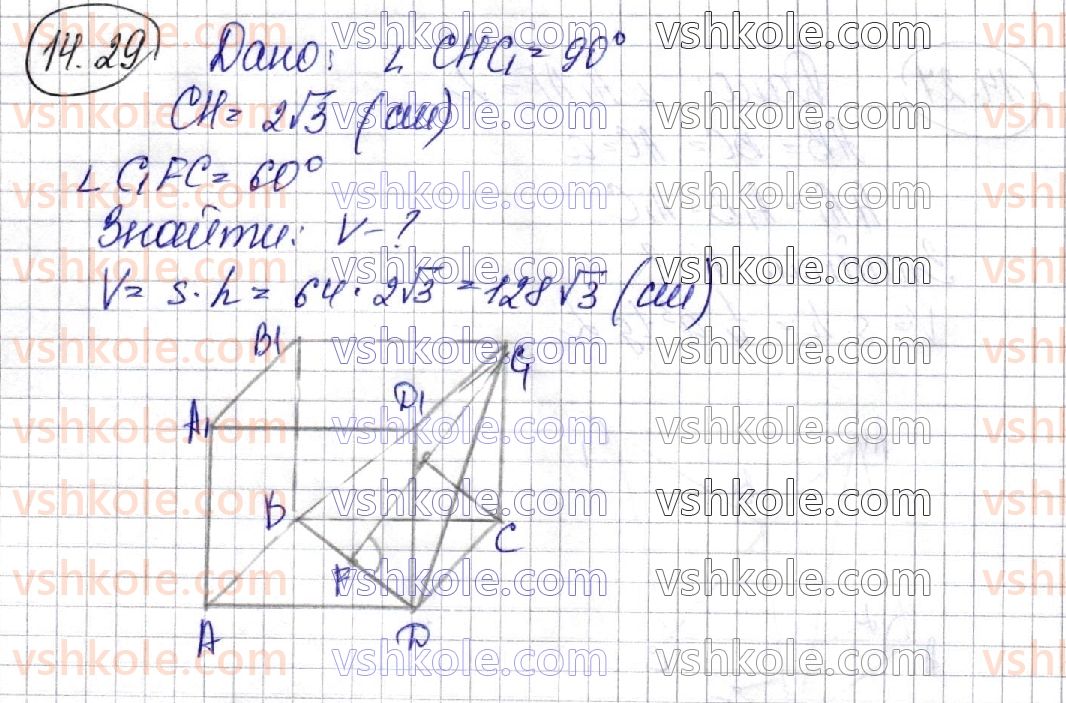 14.29 Дано: ∠ CHC₁ = 90°
CH = 2√3 (см)
∠ C₁FC = 60°
Знайти: V - ?
V = s · h = 64 · 2√3 = 128√3 (см)
B1 C₁
A₁ D₁
B C
F
A D
vshkole.com